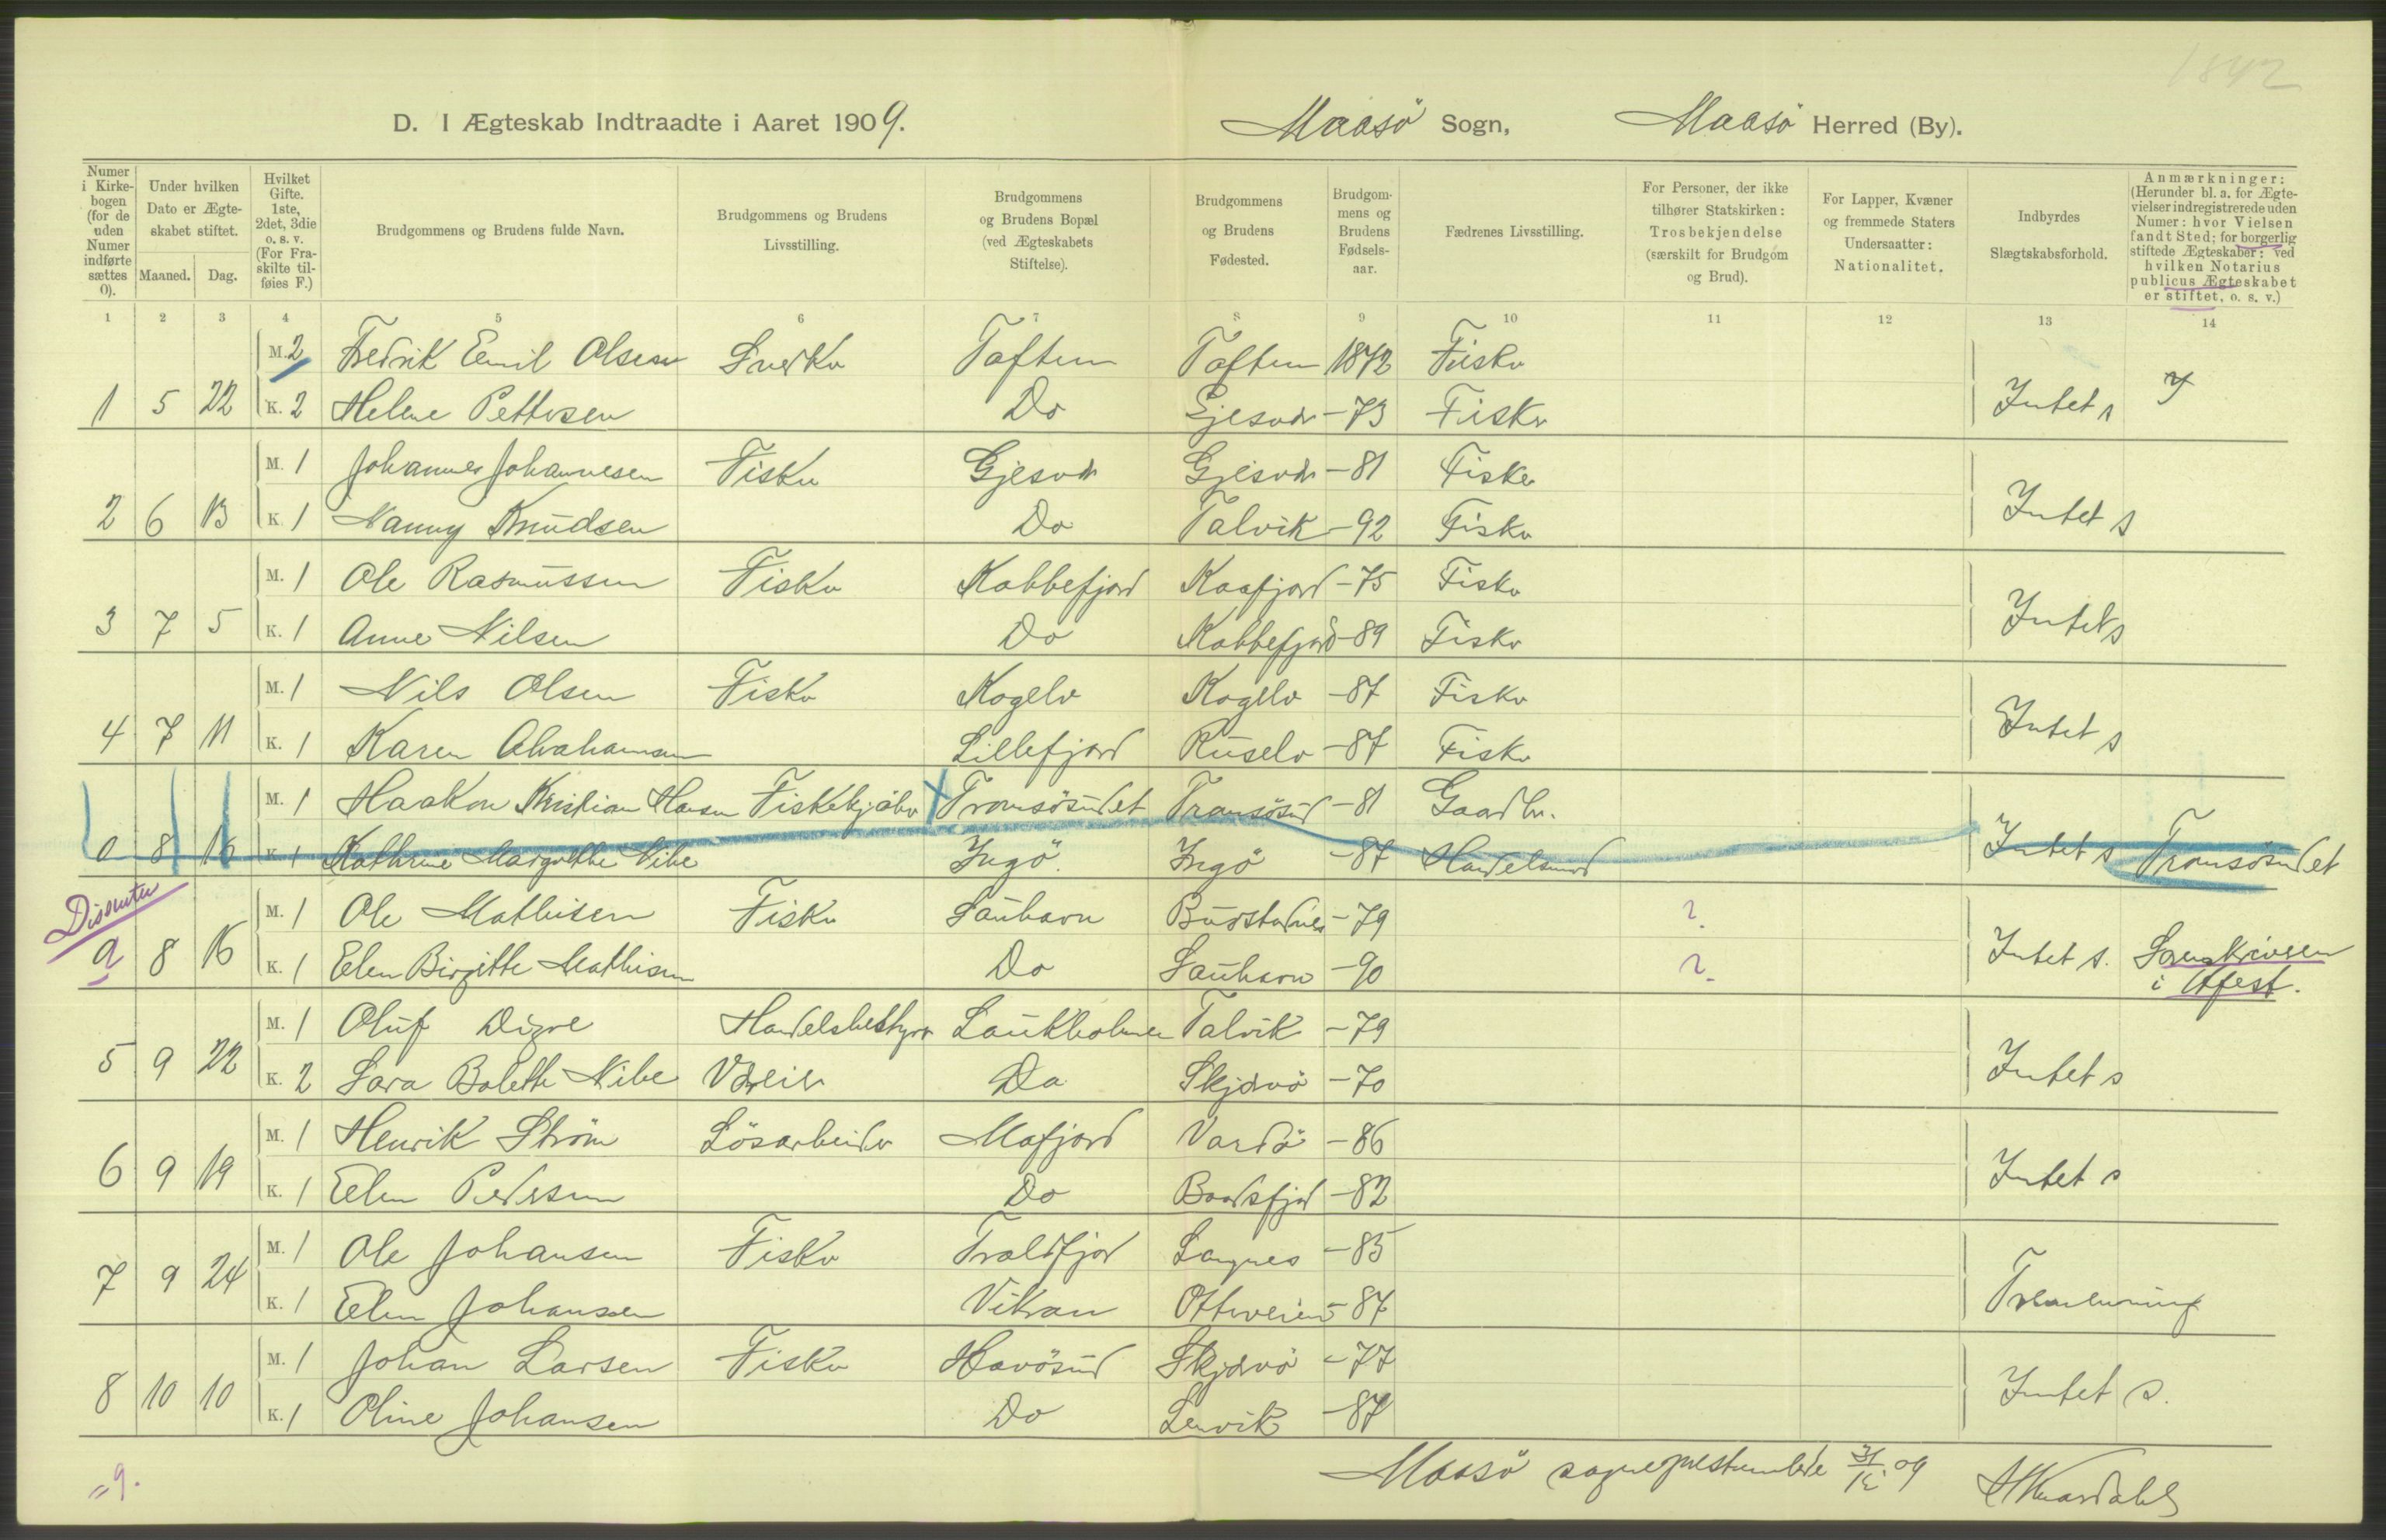 1842
D. I Ægteskab Indtraadte i Aaret 1909. Maasö Sogn, Maasö Herred (By).
Numer i Kirke-bogen (for de uden Numer indførte sættes 0).
Under hvilken Dato er Ægte-skabet stiftet.
Maaned. Dag.
Hvilket Gifte. 1ste, 2det, 3die o. s. v. (For Fra-skilte til-føies F.)
Brudgommens og Brudens fulde Navn.
Brudgommens og Brudens Livsstilling.
Brudgommens og Brudens Bopæl (ved Ægteskabets Stiftelse).
Brudgommens og Brudens Fødested.
Brudgom-mens og Brudens Fødsels-aar.
Fædrenes Livsstilling.
For Personer, der ikke tilhører Statskirken: Trosbekjendelse (særskilt for Brudgom og Brud).
For Lapper, Kvæner og fremmede Staters Undersaatter: Nationalitet.
Indbyrdes Slægtskabsforhold.
Anmærkninger: (Herunder bl. a. for Ægte-vielser indregistrerede uden Numer: hvor Vielsen fandt Sted; for borgerlig stiftede Ægteskaber: ved hvilken Notarius publicus Ægteskabet er stiftet, o. s. v.)
1 2 3 4 5 6 7 8 9 10 11 12 13 14
M. 2 Fredrik Emil Olsen Toften Toften 1872 Fisker
1 5 22 K. 2 Helene Pettersen Do Gjesvær -73 Fisker Intet s
M. 1 Johannes Johannesen Fisker Gjesvær Gjesvær -81 Fisker
2 6 13 K. 1 Nanny Knudsen Do Talvik -92 Fisker Intet s
M. 1 Ole Rasmussen Fisker Kobbefjord Kaafjord -75 Fisker
3 7 5 K. 1 Anne Nilsen Do Kobbefjord -89 Fisker Intet s
M. 1 Nils Olsen Fisker Kogelv Kogelv -87 Fisker
4 7 11 K. 1 Karen Abrahamsen Lillefjord Ruselv -87 Fisker Intet s
M. 1 Haakon Kristian Hansen Fiskekjøber Tromsösundet Tromsösund -81 Gaardbr.
0 8 16 K. 1 Kathrine Margrethe Nibe Ingö Ingö -87 Handelsmand Intet s Tromsösundet
Dissenter
M. 1 Ole Mathisen Fisker Sauhavn -79 ?
0 8 16 K. 1 Elen Birgitte Mathisen Do Sauhavn -90 ? Intet s. Sorenskriveren
i Hfest.
M. 1 Oluf Digre Handelsbestyrer Laukholmen Talvik -79
5 9 22 K. 2 Sara Bolette Nibe Do Skjervö -70 Intet s
M. 1 Henrik Ström Lösarbeider Mafjord Vardö -86
6 9 19 K. 1 Elen Pedersen Do Baadsfjord -82 Intet s
M. 1 Ole Johansen Fisker Troldfjord Langnes -85
7 9 24 K. 1 Elen Johansen Vikran Otterveien -87 Tremenning
M. 1 Johan Larsen Fisker Havösund Skjervö -77
8 10 10 K. 1 Oline Johansen Do Lervik -87 Intet s.
=9.
Maasö sogneprestembede 31/12 09